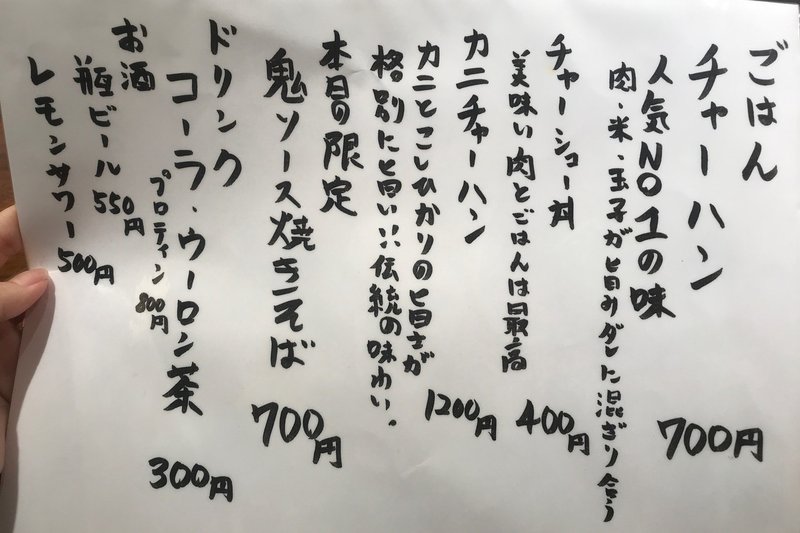 ごはん
チャーハン 700円
人気NO1の味
肉・米・玉子が旨みダレに混ざり合う
チャーシュー丼 400円
美味い肉とごはんは最高
カニチャーハン 1200円
カニとこしひかりの旨さが
格別に旨い!!伝統の味わい。
本日の限定
鬼ソース焼きそば 700円
ドリンク
コーラ・ウーロン茶 300円
プロティン 800円
お酒
瓶ビール 550円
レモンサワー 500円